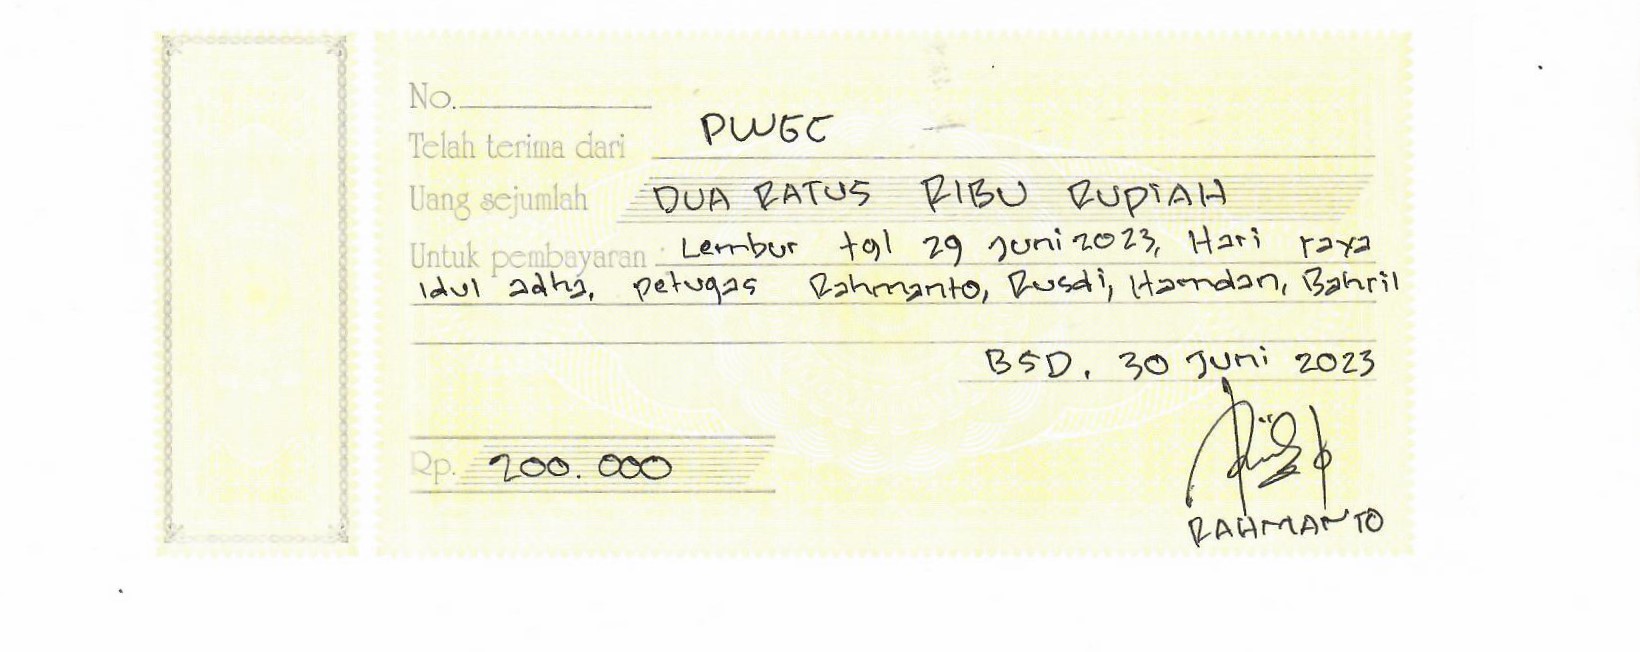 No.
Telah terima dari PWGC
Uang sejumlah DUA RATUS RIBU RUPIAH
Untuk pembayaran : Lembur tgl 29 Juni 2023, Hari raya
idul adha, petugas Rahmanto, Rusdi, Hamdan, Bahril
BSD, 30 Juni 2023
Rp. 200.000
RAHMANTO